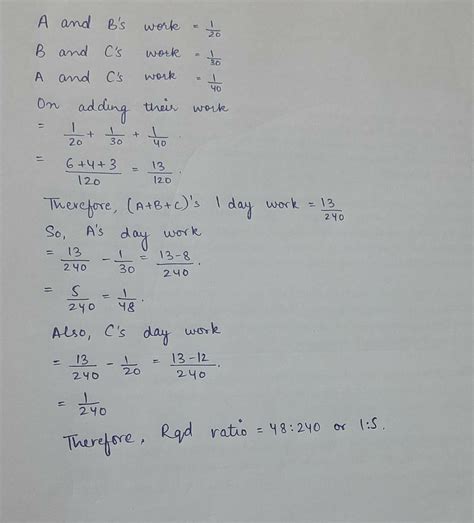 A and B's work = 1/20
B and C's work = 1/30
A and C's work = 1/40
On adding their work
= 1/20 + 1/30 + 1/40
= 6+4+3/120 = 13/120
Therefore, (A+B+C)'s 1 day work = 13/240
So, A's day work
= 13/240 - 1/30 = 13-8/240.
= 5/240 = 1/48.
Also, C's day work
= 13/240 - 1/20 = 13-12/240.
= 1/240
Therefore, Rqd ratio = 48:240 or 1:5.